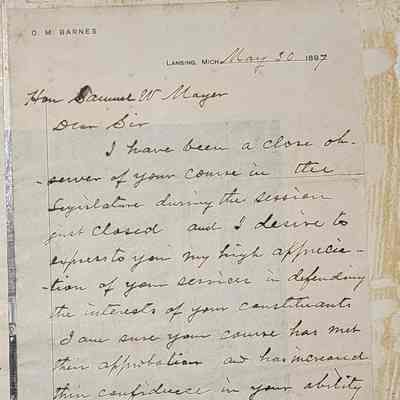 O. M. BARNES
LANSING, MICH. May 30 1897
Hon Samuel W Mayer
Dear Sir
I have been a close ob-
-server of your course in the
Legislature during the session
just closed and I desire to
express to you my high apprecia-
-tion of your services in defending
the interests of your constituents
I am sure your course has met
their approbation and has increased
their confidence in your ability